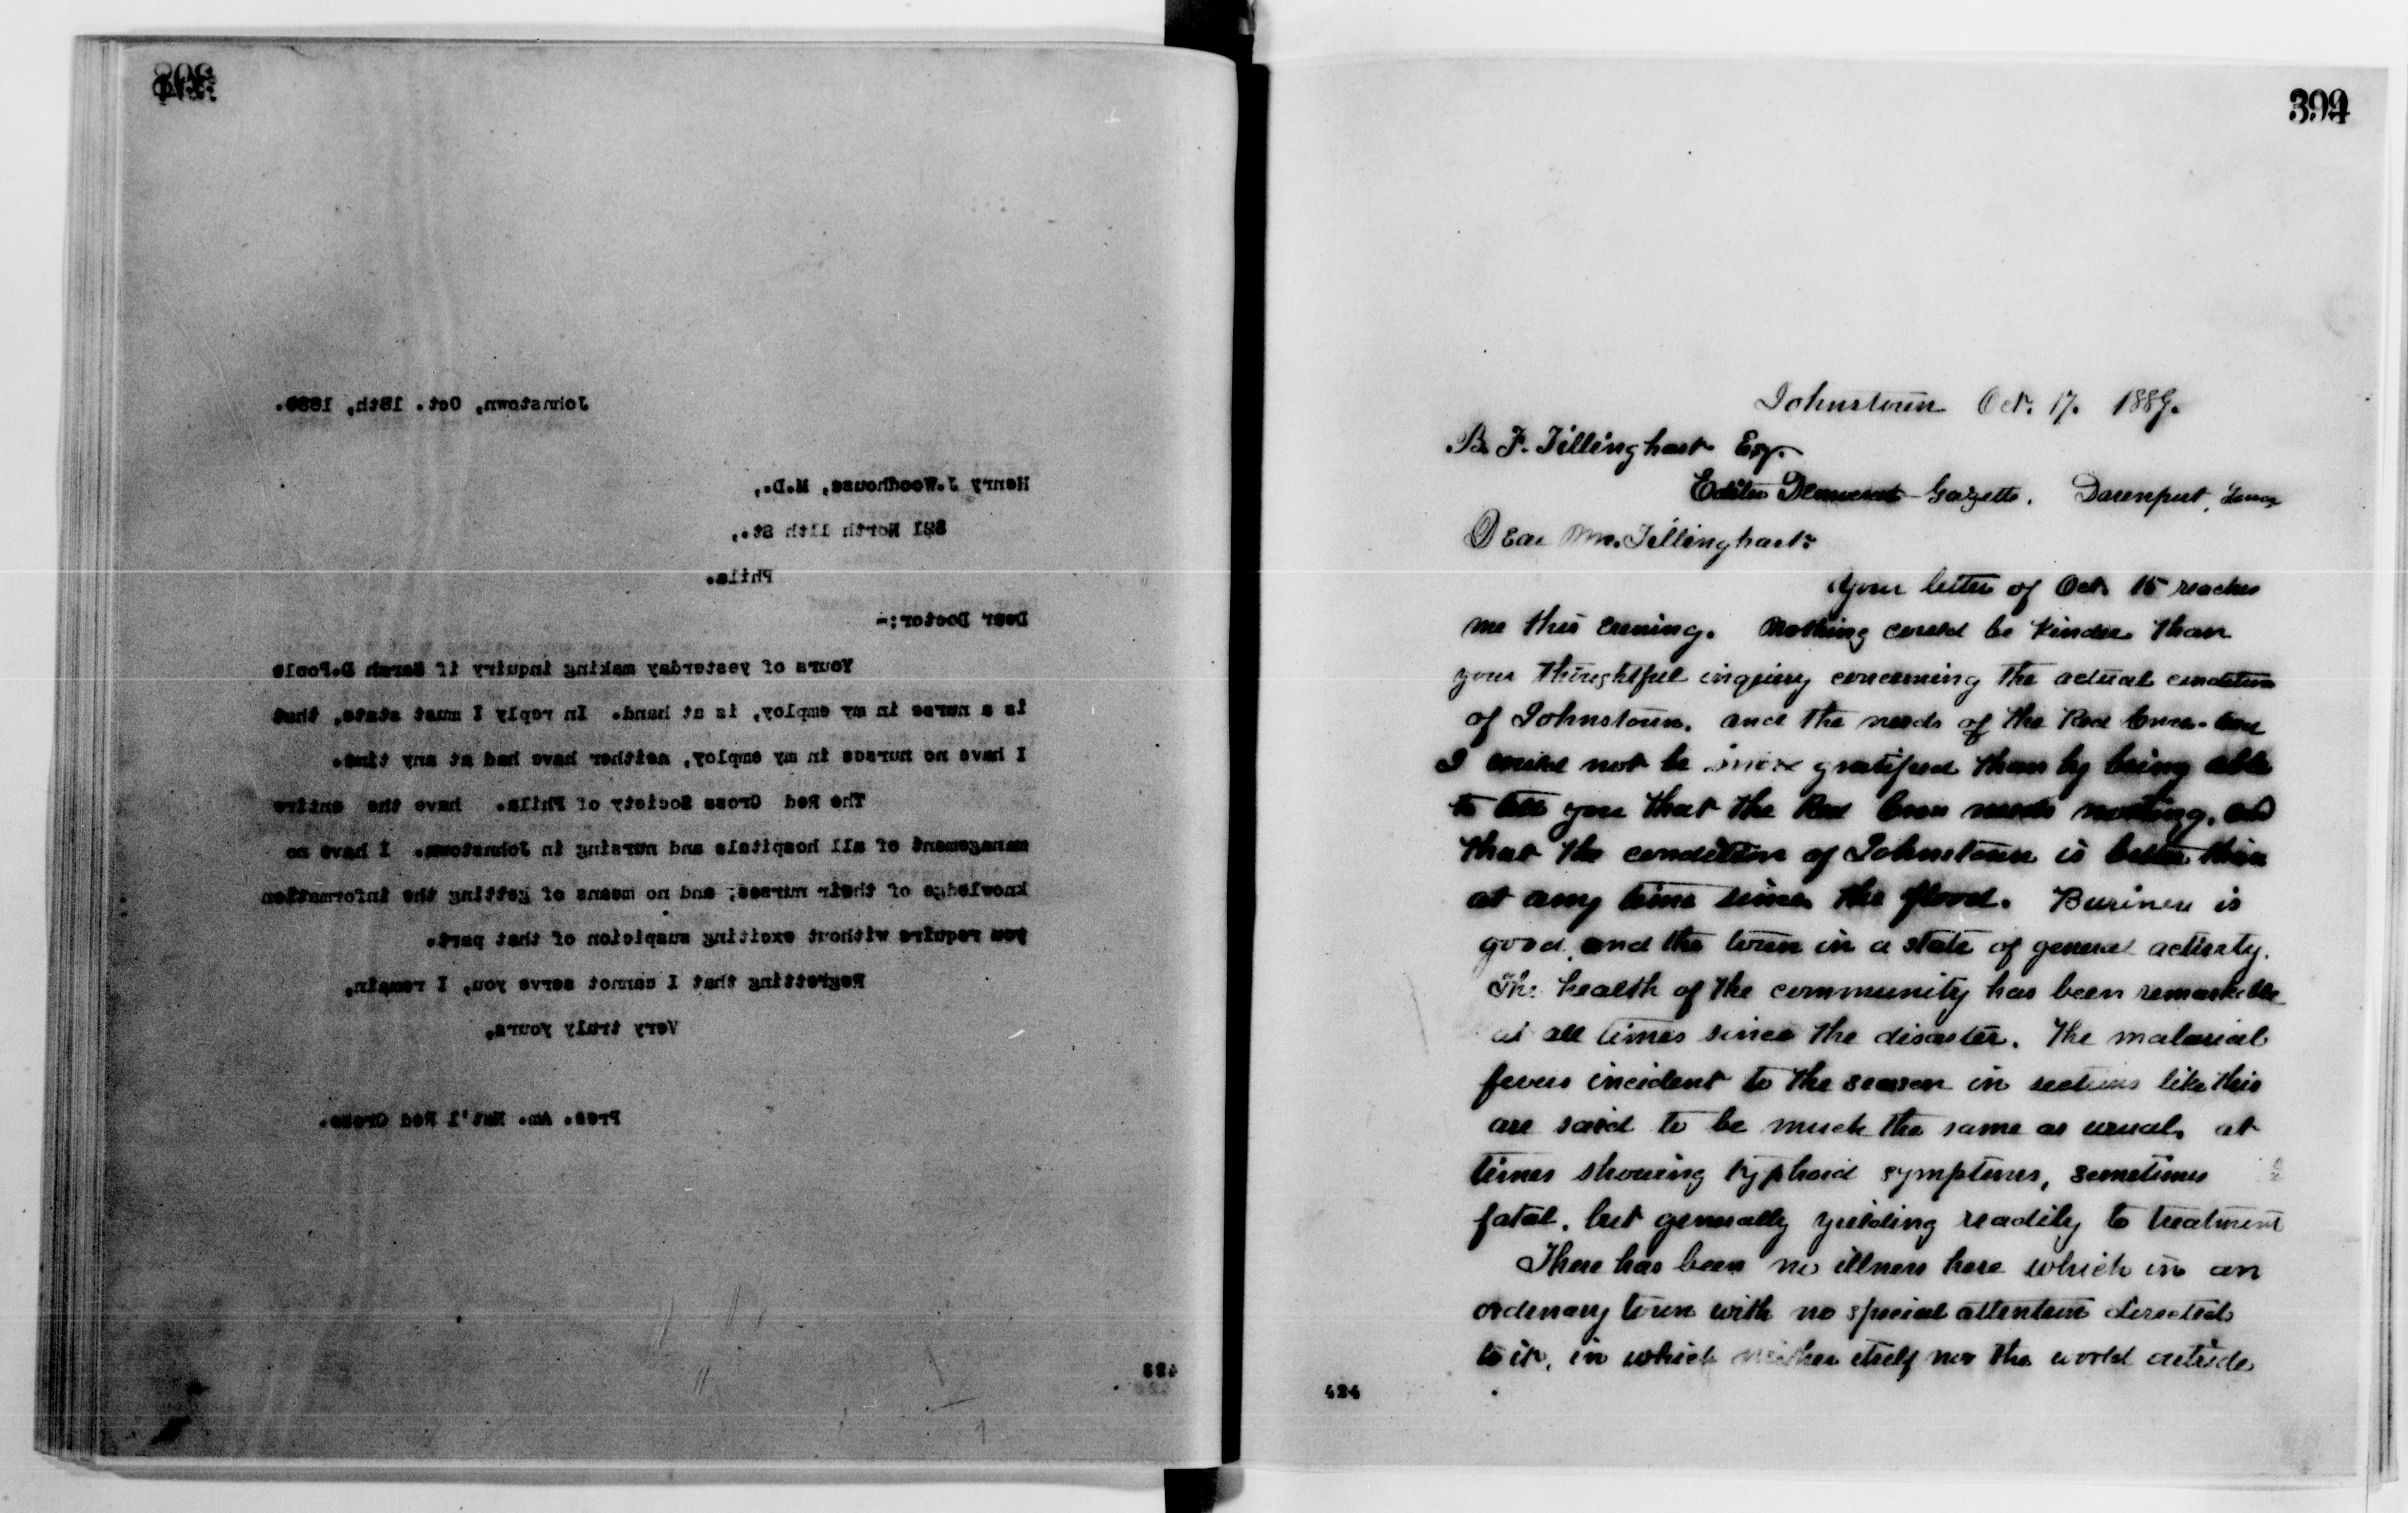 Johnstown, Oct. 18th, 1889.
Henry J.Woodhouse, M.D.,
821 North 11th St.,
Phila.
Dear Doctor:-
Yours of yesterday making inquiry if Sarah D.Poole
is a nurse in my employ, is at hand. In reply I must state, that
I have no nurses in my employ, neither have had at any time.
The Red Cross Society of Phila. have the entire
management of all hospitals and nursing in Johnstown. I have no
knowledge of their nurses; and no means of getting the information
you require without exciting suspicion of that part.
Regretting that I cannot serve you, I remain,
Very truly yours,
Pres. Am. Nat'l Red Cross.
423
394
Johnstown Oct. 17. 1889.
B. F. Tillinghast Esq.
Editor Democrat-Gazette. Davenport, Iowa
Dear Mr. Tillinghast:
Your letter of Oct. 15 reaches
me this evening. Nothing could be kinder than
your thoughtful inquiry concerning the actual condition
of Johnstown. and the needs of the Red Cross. and
I could not be more gratified than by being able
to tell you that the Red Cross needs nothing. and
that the condition of Johnstown is better than
at any time since the flood. Business is
good, and the town in a state of general activity.
The health of the community has been remarkable
at all times since the disaster. The malarial
fevers incident to the season in sections like this
are said to be much the same as usual. at
times showing typhoid symptoms, sometimes
fatal, but generally yielding readily to treatment
There has been no illness here which in an
ordenary town with no special attention directed
to it, in which neither itself nor the world outside
424